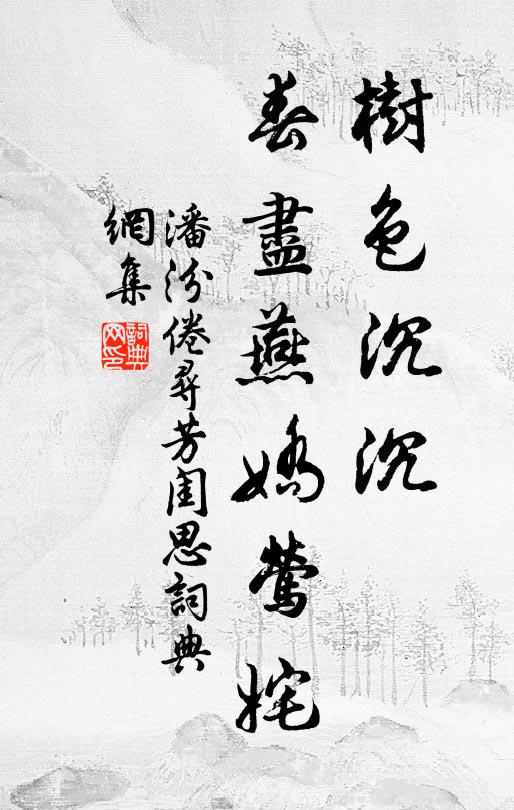 樹色沉沉
春盡燕嬌鶯姹
潘汾倦尋芳閨思詞典
網集
詞典
网印